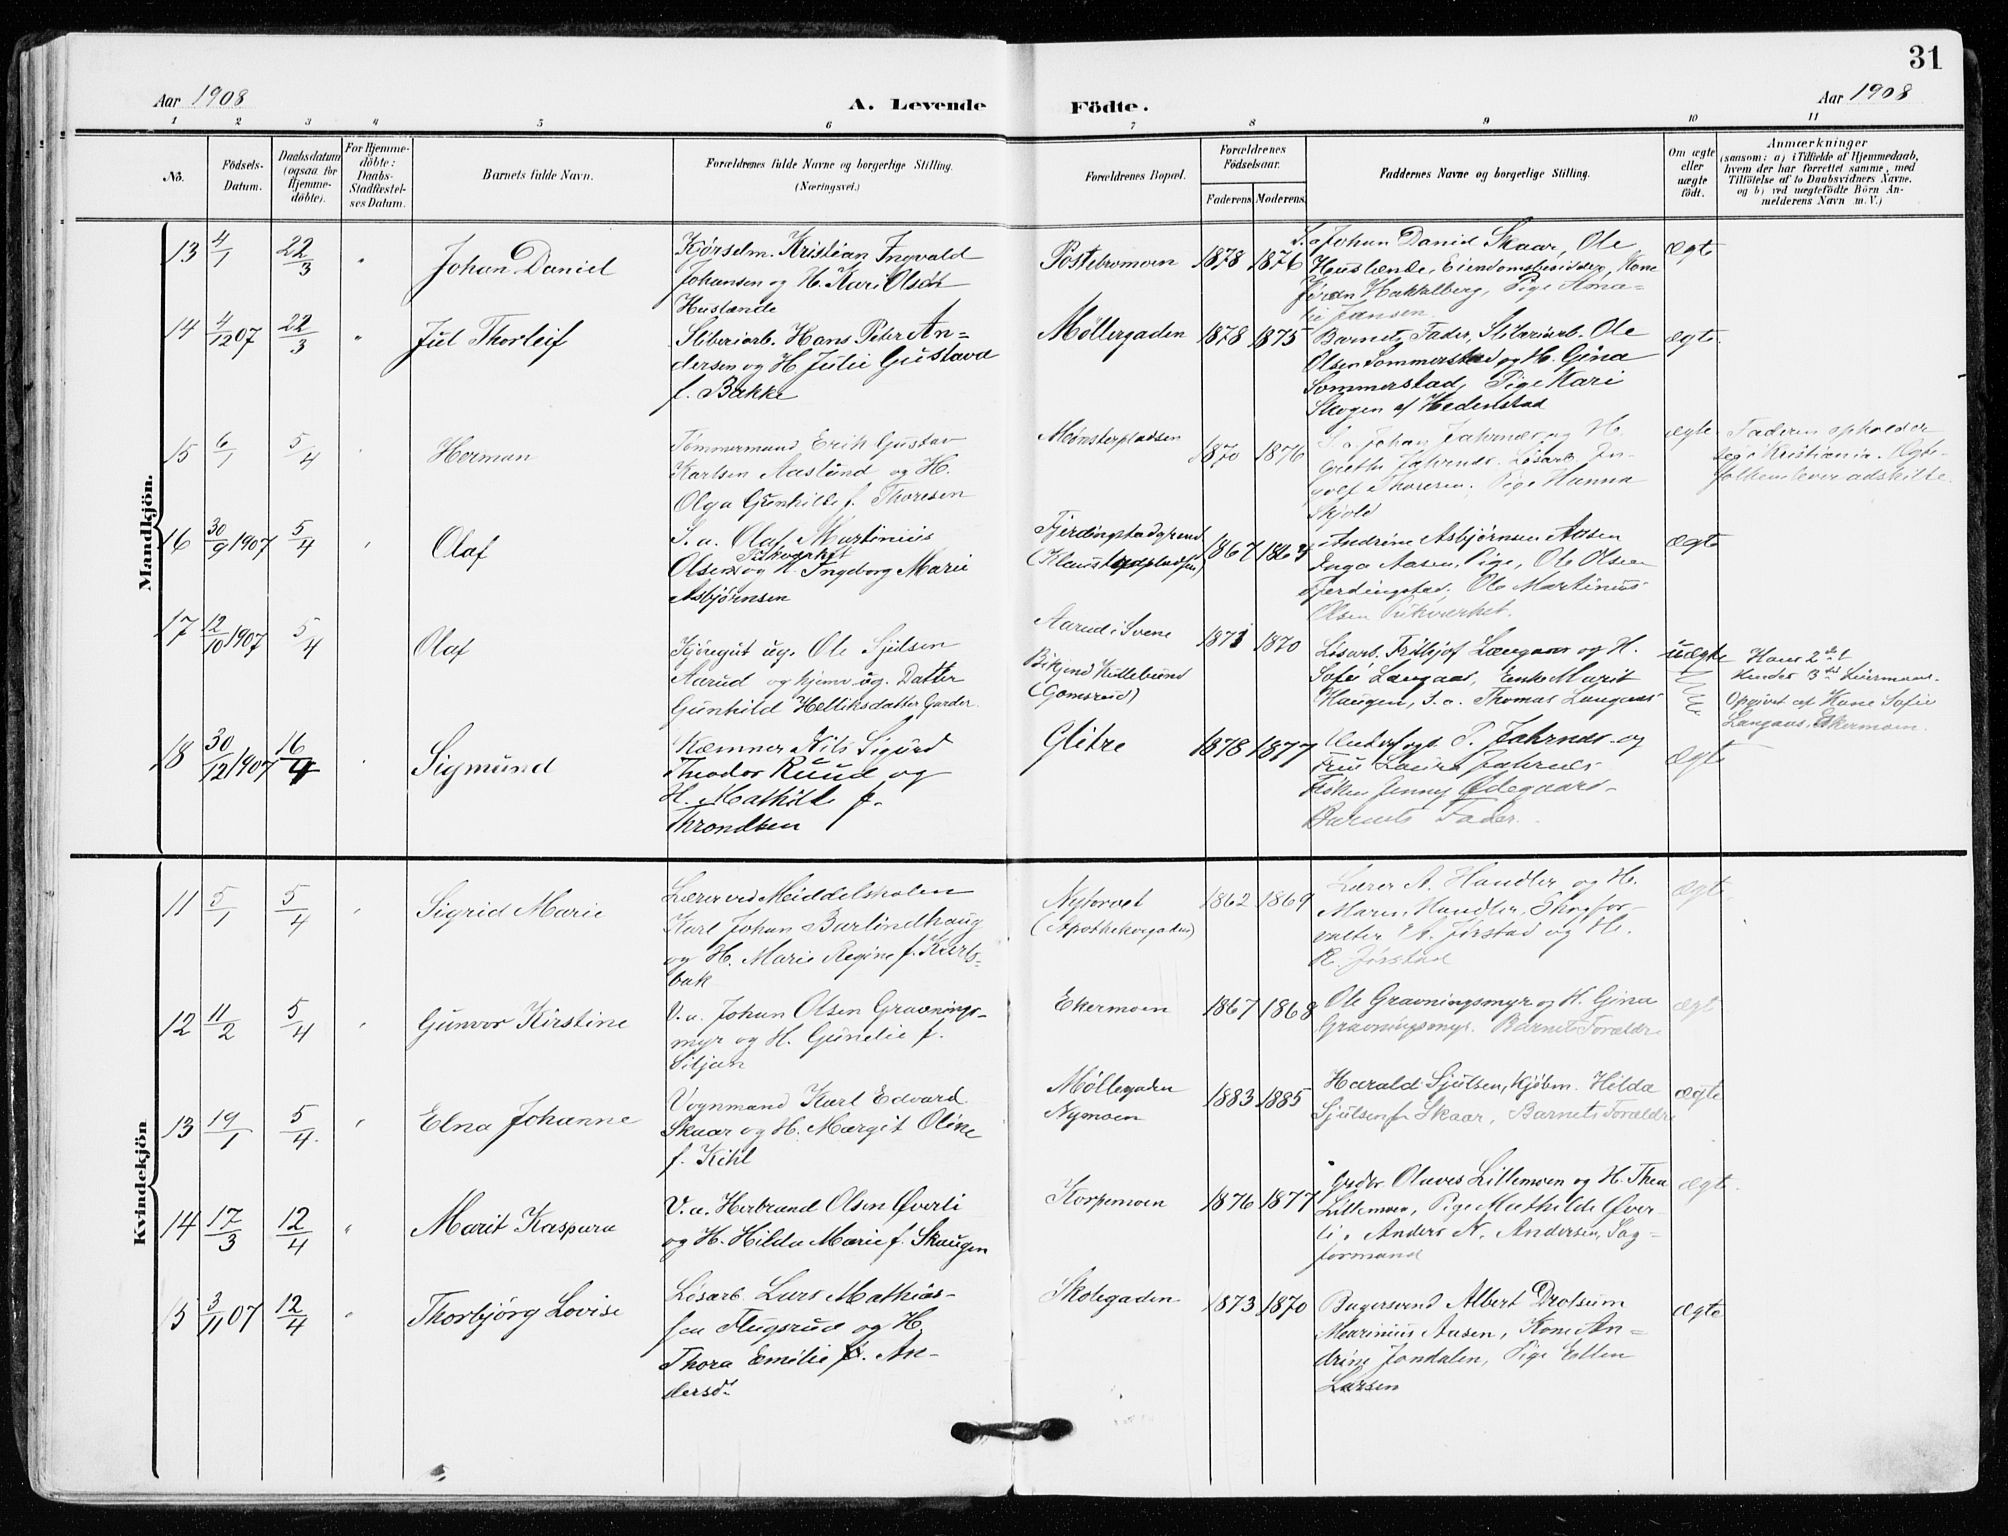 31
Aar 1908 A. Levende Födte. Aar 1908
1 2 3 4 5 6 7 8 9 10 11
No. Födsels-Datum. Daabsdatum (ogsaa for Hjemmedöbte). For Hjemmedöbte: Daabs-Stadfæstelses Datum. Barnets fulde Navn. Forældrenes fulde Navne og borgerlige Stilling. (Næringsvei.) Forældrenes Bopæl. Forældrenes Födselsaar. Faderens Moderens Faddernes Navne og borgerlige Stilling. Om ægte eller uægte födt. Anmærkninger (saasom: a) i Tilfælde af Hjemmedaab, hvem der har forrettet samme, med Tilföielse af to Daabsvidners Navne. og b) ved uægtefödte Börn Anmelderens Navn m. V.)
Mandkjön.
13 4/1 22/3 " Johan Daniel
Kjørselm. Kristian Ingvald
Johansen og H. Kari Olsdt
Huslænde
Postebromoen 1878 1876
S. a Johan Daniel Skaar, Ole
Huslænde, Eiendomsbesidder, Kone
Jøran Hakkelberg, Pige Ama-
lie Jansen
ægte
14 4/12 07 22/3 " Jul Thorleif
Sliberiarb. Hans Peter An-
dersen og H. Julie Gustava
f. Bakke
Møllergaden 1878 1875
Barnets Fader, Sliberiarb. Ole
Olsen Sommerstad og H. Gina
Sommerstad, Pige Kari
Skogen af Hedenstad
ægte.
15 6/1 5/4 Herman
Tømmermand Erik Gustav
Karlsen Aaslund og H.
Olga Gunhilde f. Thoresen
Mønsterpladsen 1870 1876
S. a. Johan Jahrnæs og H.
Grethe Jahrnæs. Løsarb. In-
golf Thoresen. Pige Hanna
Skjold
ægte
Faderen opholder
sig i Kristiania. Ægte-
folkene lever adskilte.
16 30/9 1907 5/4 " Olaf
S. a. Olaf Martinius
Olsen Pikværket og H. Ingeborg Marie
Asbjørnsen
Fjerdingstadgrund
1867 1864
Andrine Asbjørnsen Aasen
Inga Aasen, Pige, Ole Olsen
Fjerdingstad, Ole Martinius
Olsen Pikværket.
ægte
17 12/10 1907 5/4 Olaf
Ole Sjulsen
Aarud og hjemv. ug. Datter
Gunhild Helliksdatter Garder.
Aarud i Svene
(Gomsrud)
1871 1870
Løsarb. Fritjof Langaas og H.
Sofie Langaas, Enke Marit
Haugen, S. a. Thomas Langaas
uægte
Hans 2det
Hendes 3die Leiermaal.
Opgivet af Kone Sofie
Langaas, Ekermoen.
18 30/12 1907 16/4 " Sigmund
Kæmner Nils Sigurd
Theodor Ruud og
H. Mathilde f.
Throndsen
Glitre 1878 1877
P. Jahrnæs og
Fru Laura Jahrnæs
Frøken Jenny Ødegaard-
Barnets Fader.
ægte
Kvindekjön
11 5/1 5/4 " Sigrid Marie
Lærer ved Middelskolen
Karl Johan Barlindhaug
og H. Marie Regine f. Kierls-
bak
Nytorvet
(Apothekergaden)
1862 1869
Lærer A. Handler og H.
Maren Handler, Skogfor-
valter A. Jørstad og H.
R. Jørstad
ægte
12 11/2 5/4 " Gunvor Kirstine
V. a. Johan Olsen Gravnings-
myr og H. Gunelie f.
Siljan
Ekermoen 1867 1868
Ole Gravningsmyr og H. Gina
Gravningsmyr. Barnets Forældre
ægte
13 19/1 5/4. " Elna Johanne
Vognmand Karl Edvard
Skaar og H. Margit Oline
f. Kihl
Møllegaden
Nymoen
1883 1885
Harald Sjulsen, Kjøbm. Hilda
Sjulsen f. Skaar, Barnets Forældre
ægte
14 17/3 12/4 " Marit Kaspara
V. a. Herbrand Olsen Øverli
og H. Hilda Marie f. Skaugen
Korpemoen 1876 1877
Olaves Lillemoen og H. Thea
Lillemoen, Pige Mathilde Øver-
li, Anders N. Andersen, Sag-
formand
ægte.
15 3/11 07 12/4 " Thorbjörg Lovise
Løsarb. Lars Mathias-
sen Flugsrud og H.
Thora Emilie f. An-
dersd.
Skolegaden 1873 1870
Bagersvend Albert Drolsum
Marinius Aasen, Kone An-
drine Jondalen, Pige Ellen
Larsen
ægte